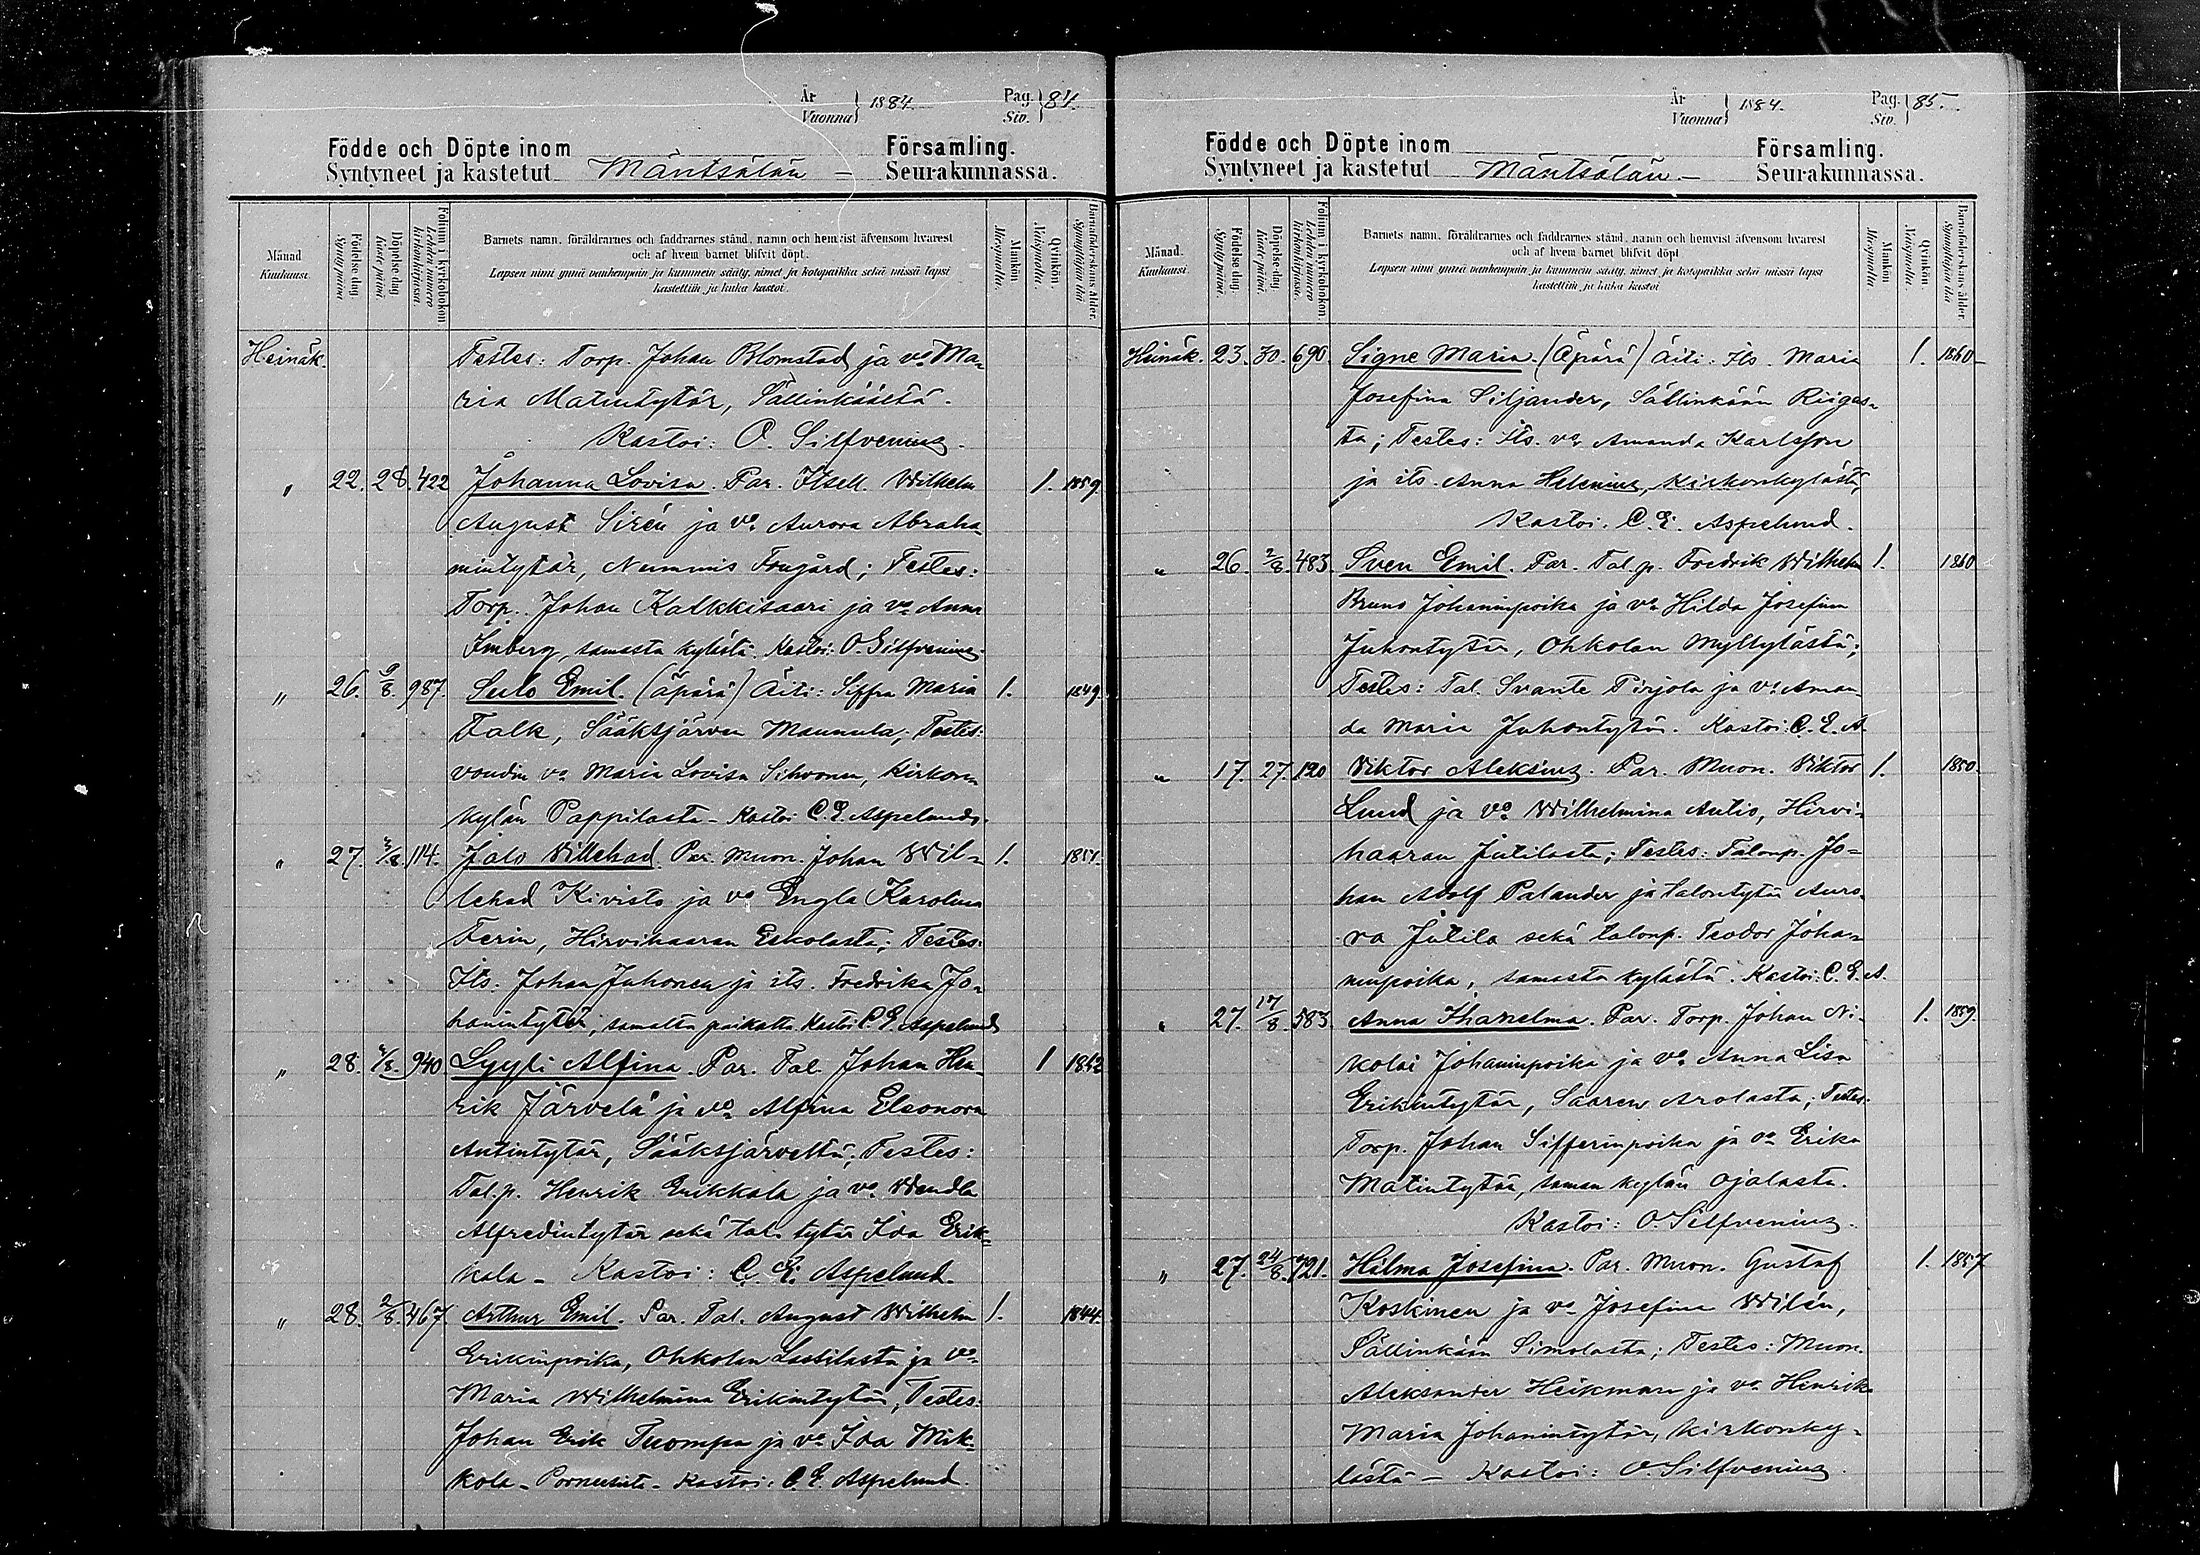 År
Vuonna } 1884.
Pag.
Siv. } 84.
Födde och Döpte inom Församling.
Syntyneet ja kastetut Mäntsälän – Seurakunnassa.
Månad
Kuukausi.
Födelse-dag.
Syntypäivä.
Döpelse-dag.
Kaste-päivä.
Folium i kyrkoboken
Lehden numero
kirkonkirjassa.
Barnets namn, föräldrarnes och faddrarnes stånd, namn och hemvist äfvensom hvarest
och af hvem barnet blifvit döpt.
Lapsen nimi ynnä vanhempain ja kummein sääty, nimet ja kotopaikka sekä missä lapsi
kastettiin ja kuka kastoi.
Mankön.
Miespuolta.
Qvinkön.
Naispuolta.
Barnaföderskans ålder.
Synnyttäjän ikä
Heinäk. Testes: Torp. Johan Blomstad ja vo. Ma-
ria Matintytär, Sällinkäältä.
Kastoi: O. Silfvenius.
" 22. 28. 422 Johanna Lovisa. Par. Itsell. Wilhelm 1. 1859.
August Sirén ja vo. Aurora Abraha
mintytär, Nummis Frugård; Testes:
Torp. Johan Kalkkisaari ja vo. Anna
Imberg, samasta kylästä. Kastoi: O. Silfvenius.
" 26. 9/8. 987. Sulo Emil. (äpärä) Äiti: Siffra Maria 1. 1849.
Falk, Sääksjärven Maunula; Testes:
voudin vo. Maria Lovisa Sihvonen, Kirkon-
kylän Pappilasta – Kastoi C. E. Aspelund.
" 27. 3/8. 114. Jalo Villehad. Par. Muon. Johan Wil- 1. 1851.
lehad Kivistö ja vo Engla Karolina
Ferin, Hirvihaaran Eskolasta; Testes:
Its. Johan Juhonen ja its. Fredrika Jo-
hanintytär, samalta paikalta. Kastoi C. E. Aspelund
" 28. 4/8. 940 Lyyli Alfina. Par. Tal. Johan Hen- 1 1842
rik Järvelä ja vo. Alfina Eleonora
Antintytär, Sääksjärveltä; Testes:
Tal.p. Henrik Erikkala ja vo. Wendla
Alfredintytär sekä tal. tytär Ida Erik-
kala – Kastoi: C. E. Aspelund.
" 28. 2/8. 467 Arthur Emil. Par. Tal. August Wilhelm 1. 1844.
Erikinpoika, Ohkolan Lassilasta ja vo.
Maria Wilhelmina Erikintytär, Testes:
Johan Erik Tuompa ja vo. Ida Mik-
kola – Kastoi: C. E. Aspelund.
År
Vuonna } 1884.
Pag.
Siv. } 85.
Födde och Döpte inom Församling.
Syntyneet ja kastetut Mäntsälän – Seurakunnassa.
Månad.
Kuukausi.
Födelse-dag.
Syntypäivä.
Döpelse-dag.
Kaste-päivä.
Folium i kyrkoboken
Lehden numero
kirkonkirjassa.
Barnets namn, föräldrarnes och faddrarnes stånd, namn och hemvist äfvensom hvarest
och af hvem barnet blifvit döpt
Lapsen nimi ynnä vanhempain ja kummein sääty, nimet ja kotopaikka sekä missä lapsi
kastettiin ja kuka kastoi
Mankön
Miespuolta.
Qvinkön.
Naispuolta.
Barnaföderskans ålder
Synnyttäjän ikä
Heinäk. 23. 30. 690. Signe Maria. (Äpärä) Äiti. Its. Maria 1. 1860
Josefina Siljander, Sällinkään Riigas-
ta; Testes: Its. vo. Amanda Karlsson
ja its. Anna Helenius, Kirkonkylästä,
Kastoi. C. E. Aspelund.
" 26. 2/8. 483. Sven Emil. Par. Tal.p. Fredrik Wilhelm 1. 1860
Bruno Johaninpoika ja vo. Hilda Josefina
Juhontytär, Ohkolan Myllylästä;
Testes: Tal. Svante Pirjola ja vo. Aman-
da Maria Juhontytär. Kastoi: C. E. A.
" 17. 27. 120 Viktor Aleksius. Par. Muon. Viktor 1. 1850.
Lund ja vo. Wilhelmina Antio, Hirvi-
haaran Jutilasta; Testes: Talonp. Jo-
han Adolf Palander ja talontytär Auro-
ra Jutila sekä talonp. Teodor Joha-
ninpoika, samasta kylästä. Kastoi: C. E. A.
" 27. 17/8. 583. Anna Ihanelma. Par. Torp. Johan Ni- 1. 1859.
kolai Johaninpoika ja vo. Anna Lisa
Erikintytär, Saaren Arolasta; Testes:
Torp. Johan Sifferinpoika ja vo. Erika
Matintytär, saman kylän Ojalasta.
Kastoi: O. Silfvenius.
" 27. 24/8. 721. Hilma Josefina. Par. Muon. Gustaf 1. 1857
Koskinen ja vo. Josefina Wilén,
Sällinkään Simolasta; Testes: Muon.
Aleksander Heikman ja vo. Henrika
Maria Johanintytär, Kirkonky-
lästä – Kastoi: O. Silfvenius.